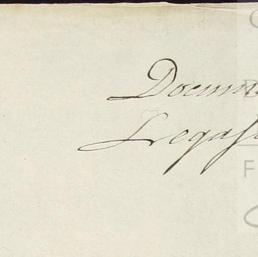 Docum
Legaj